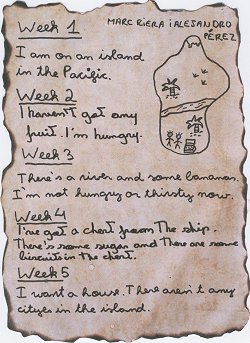 Week 1
MARC RIERA i ALEJANDRO
PÉREZ
I am on an island
in the Pacific.
Week 2
I haven't got any
fruit. I'm hungry.
Week 3
There's a river and some bananas.
I'm not hungry or thirsty now.
Week 4
I've got a chest from The ship.
There's some sugar and There are some
biscuits in the chest.
Week 5
I want a house. There aren't any
cityes in the island.